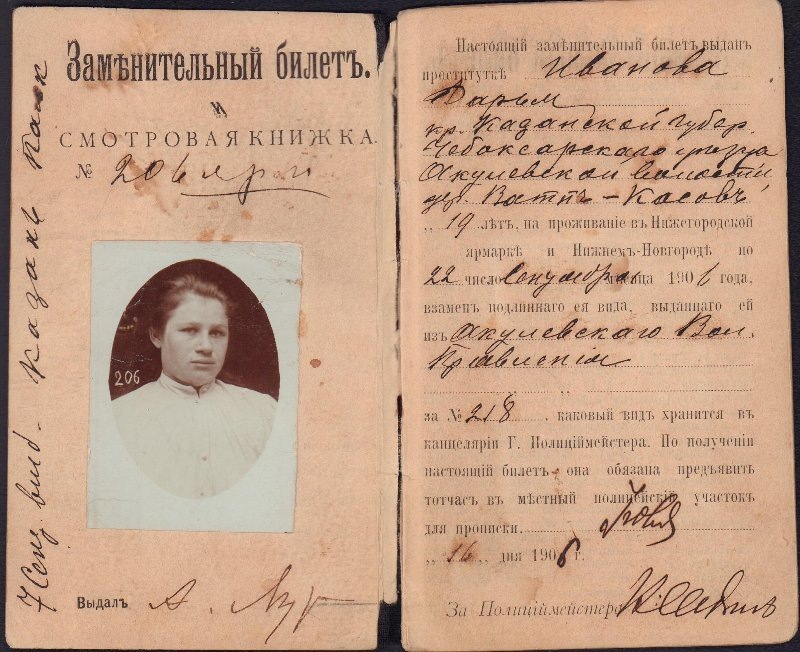 Замѣнительный билетъ.
И
СМОТРОВАЯ КНИЖКА.
№ 206 ярм
206
Выдалъ А.
7 Сент выд. Казань
Настоящій замѣнительный билетъ выданъ
проституткѣ Иванова
Дарья
кр. Казанской губер.
Чебоксарскаго уѣзда
Акулевской волости
дер.
„ 19 лѣтъ, на проживаніе въ Нижегородской
ярмаркѣ и Нижнемъ-Новгородѣ по
22 число Сентября мѣсяца 1906 года,
взаменъ подлиннаго ея вида, выданнаго ей
изъ Акулевскаго Вол.
Правленія
за № 218 , каковый видъ хранится въ
канцеляріи Г. Полиціймейстера. По полученіи
настоящій билетъ она обязана предъявить
тотчасъ въ мѣстный полицейскій участокъ
для прописки.
„ 16 „ дня 1906 г.
За Полиціймейстера